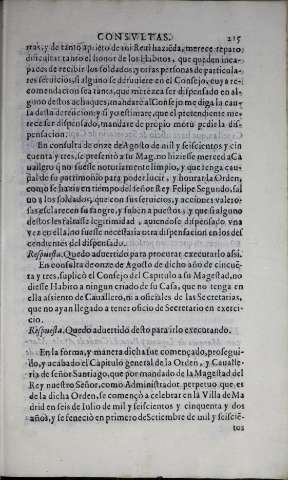 CONSVLTAS. 215
tras, y de tanto aprieto de mi Real hazieda, merece reparo
dificultar tanto el honor de los Habitos, que queden inca-
paces de recibir los soldados, y otras personas de particula-
res seruicios, si alguno se detuuiere en el Consejo, cuya re-
comendacion sea tanta, que merezca ser dispensado en al-
guno destos achaques, mandarè al Consejo me diga la cau-
sa de la detencion; y si yo estimare, que el pretendiente me-
rece ser dispensado, mandare de proprio motu pedir la dis-
pensacion.
En consulta de onze de Agosto de mil y seiscientos y cin
cuenta y tres, se presentò a su Mag. no hiziesse merced a Ca
uallero q̃ no fuesse notoriamente limpio, y que tenga cau-
pal de su patrimonio para poder lucir, y honrar la Orden,
como se hazia en tiempo del señor Rey Felipe Segundo, sal
uo a los soldados, que con sus seruicios, y acciones valero-
sas esclarecen su sangre, y suben a puestos, y que si alguno
destos les faltasse legitimidad, auiendose dispensado vna
vez en ella, no fuesse necessaria otra dispensacion en los des
cendientes del dispensado.
Respuesta. Quedo aduertido para procurar executarlo assi.
En consulta de onze de Agosto de dicho año de cincuẽ-
ta y tres, suplicò el Consejo del Capitulo a su Magestad, no
diesse Habito a ningun criado de su Casa, que no tenga en
ella assiento de Cauallero, ni a oficiales de las Secretarias,
que no ayan llegado a tener oficio de Secretario en exerci-
cio.
Respuesta. Quedo aduertido desto para irlo executando.
En la forma, y manera dicha fue començado, prosegui-
do, y acabado el Capitulo general de la Orden, y Caualle-
ria de señor Santiago, que por mandado de la Magestad del
Rey nuestro Señor, como Administrador perpetuo que es
de la dicha Orden, se començò a celebrar en la Villa de Ma
drid en seis de Iulio de mil y seiscientos y cinquenta y dos
años, y se feneciò en primero de Setiembre de mil y seisciẽ-
tos